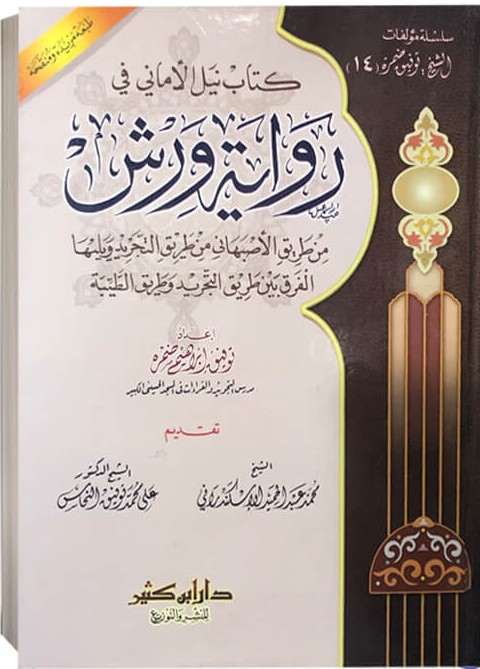 طبعة مزيدة ومنقحة
سلسلة مؤلفات
الشيخ: توفيق ضمرة (١٤)
كتاب نيل الأماني في
رواية ورش
من طريق الأصبهاني من طريق التجريد ويليها
الفرق بين طريق التجريد وطريق الطيبة
إعداد
توفيق إبراهيم ضمرة
مدرس التجويد والقراءات في المسجد الحسيني الكبير
تقديم
الشيخ
محمد عبد الحميد الإسكندراني
الشيخ الدكتور
علي محمد توفيق النحاس
دار ابن كثير
للنشر والتوزيع